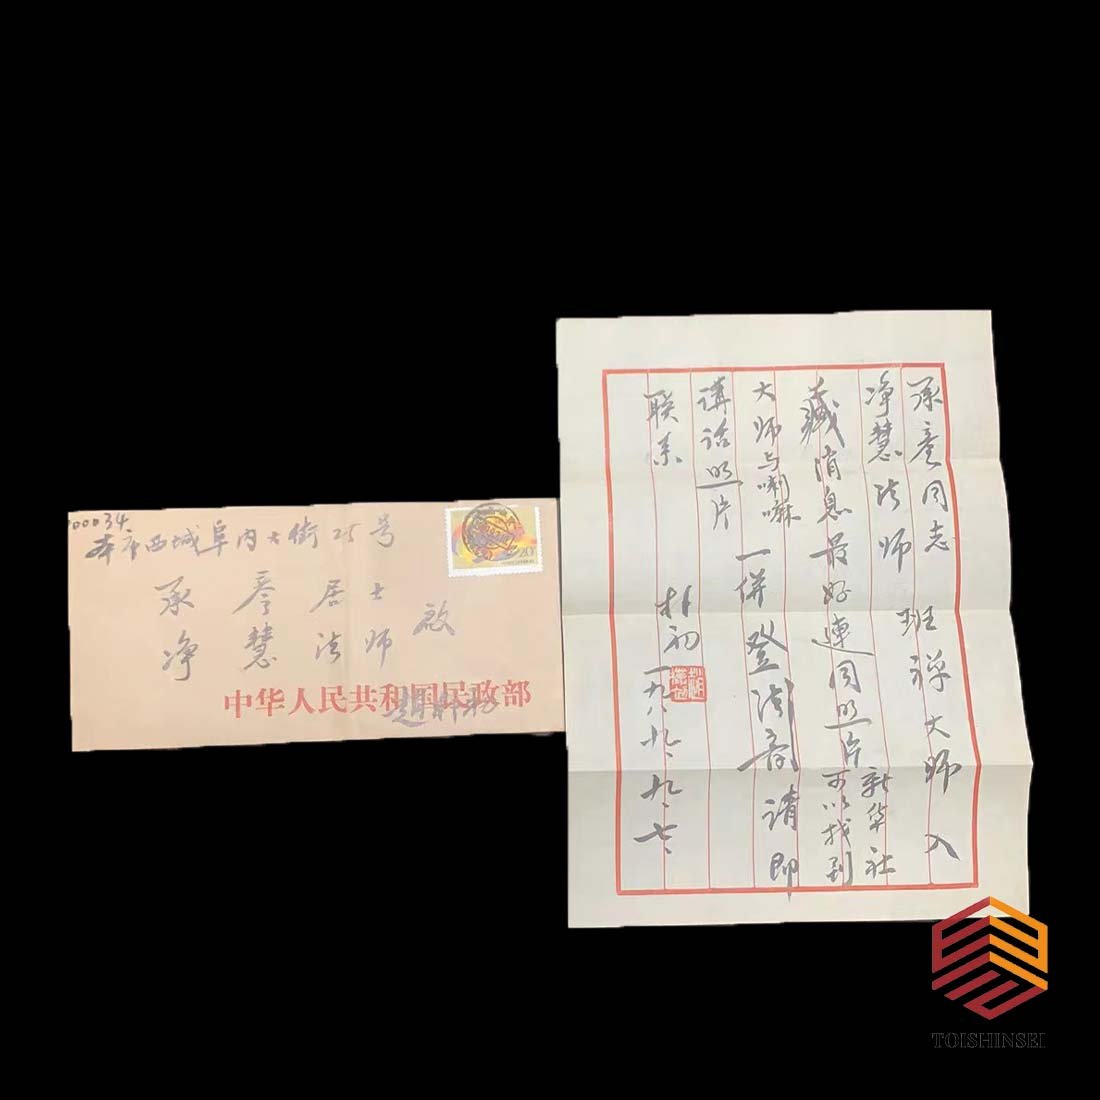 100034
本市西城阜内大街25号
承謇居士
净慧法师
啟
中华人民共和国民政部
赵朴初
20
承謇同志
净慧法师
班禅大师入
藏消息最好连同照片
新华社
可以找到
大师与喇嘛
讲话照片
一併登
请即
联系
朴初
一九八九、九、七、
TOISHINSEI